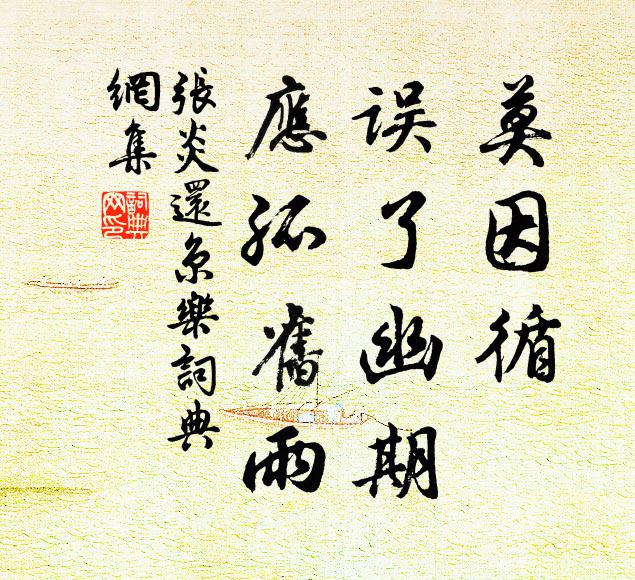 莫因循
误了幽期
應孤舊雨
張炎還京樂詞典
網集
詞典
网印